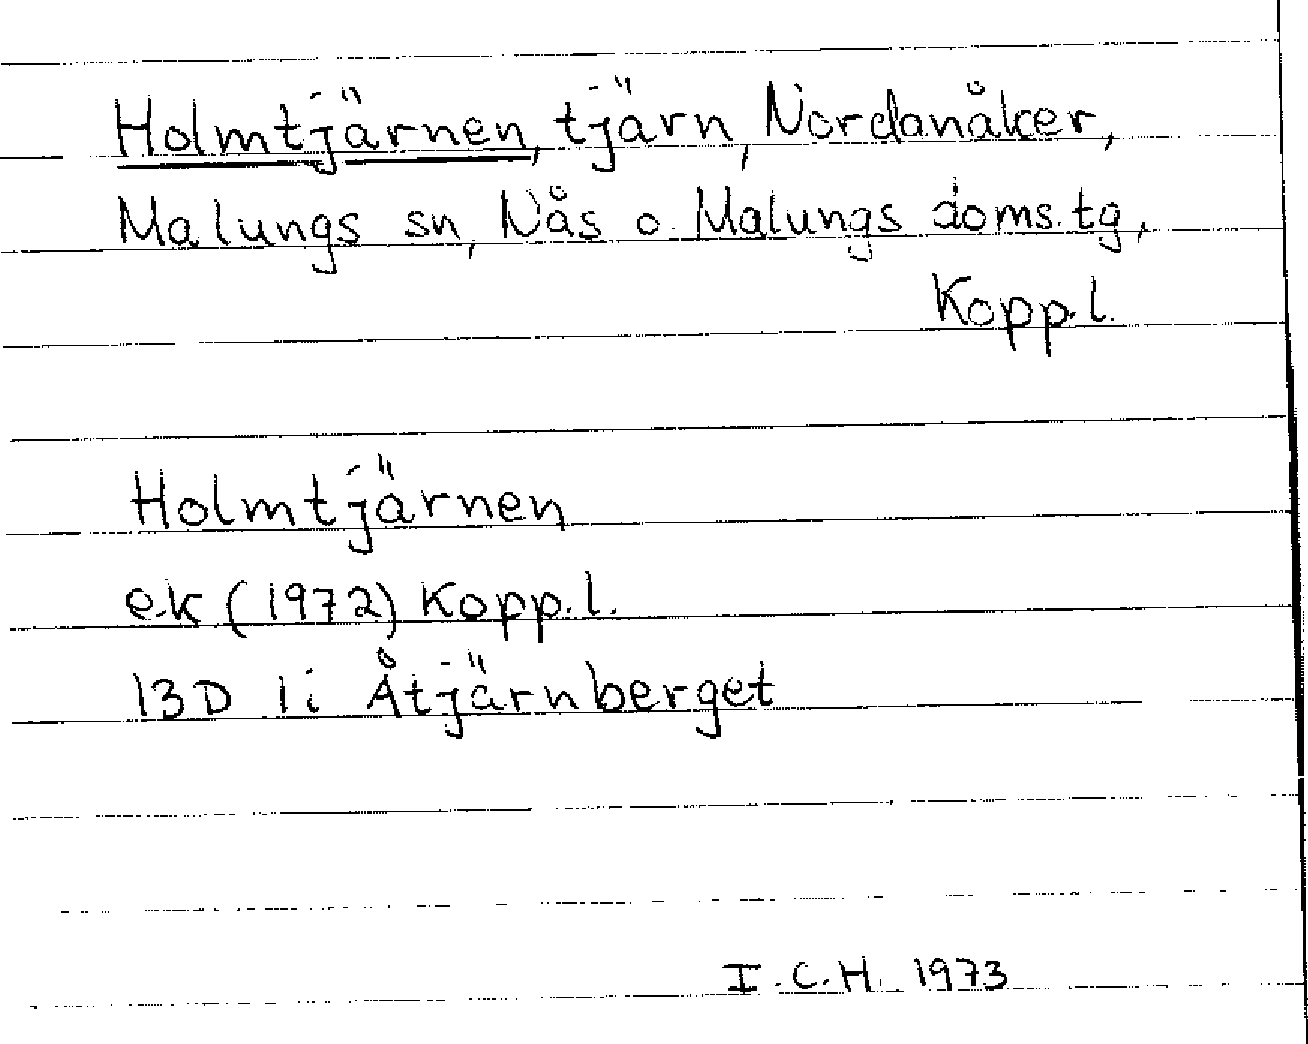 Holmtjärnen, tjärn, Nordanåker,
Malungs sn, Nås o. Malungs doms.tg,
Kopp.l.
Holmtjärnen
e.k (1972) Kopp.l.
13D 1i Åtjärnberget
I.C.H. 1973